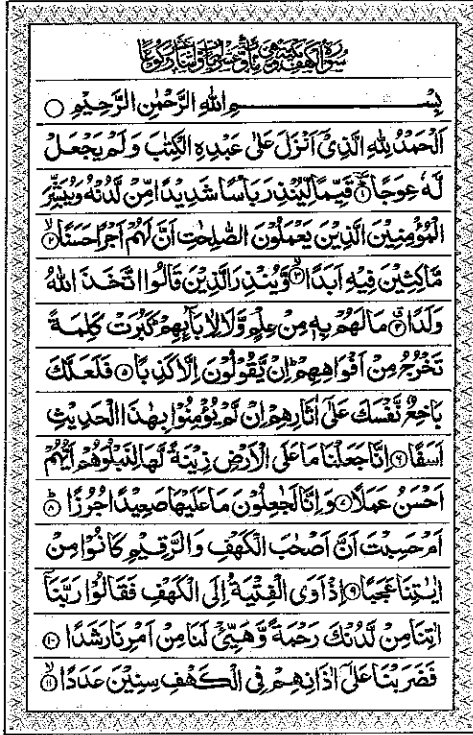 سُوْرَةُ الْكَهْفِ مَكِّيَّةٌ وَّهِيَ
بِسْمِ اللهِ الرَّحْمٰنِ الرَّحِيْمِ ○
اَلْحَمْدُ لِلّٰهِ الَّذِيْۤ اَنْزَلَ عَلٰى عَبْدِهِ الْكِتٰبَ وَلَمْ يَجْعَلْ
لَّهٗ عِوَجًا ۝۱ قَيِّمًا لِّيُنْذِرَ بَاْسًا شَدِيْدًا مِّنْ لَّدُنْهُ وَيُبَشِّرَ
الْمُؤْمِنِيْنَ الَّذِيْنَ يَعْمَلُوْنَ الصّٰلِحٰتِ اَنَّ لَهُمْ اَجْرًا حَسَنًا ۝۲
مَّاكِثِيْنَ فِيْهِ اَبَدًا ۝۳ وَّيُنْذِرَ الَّذِيْنَ قَالُوا اتَّخَذَ اللهُ
وَلَدًا ۝۴ مَا لَهُمْ بِهٖ مِنْ عِلْمٍ وَّلَا لِاٰبَآئِهِمْ كَبُرَتْ كَلِمَةً
تَخْرُجُ مِنْ اَفْوَاهِهِمْ اِنْ يَّقُوْلُوْنَ اِلَّا كَذِبًا ۝۵ فَلَعَلَّكَ
بَاخِعٌ نَّفْسَكَ عَلٰۤى اٰثَارِهِمْ اِنْ لَّمْ يُؤْمِنُوْا بِهٰذَا الْحَدِيْثِ
اَسَفًا ۝۶ اِنَّا جَعَلْنَا مَا عَلَى الْاَرْضِ زِيْنَةً لَّهَا لِنَبْلُوَهُمْ اَيُّهُمْ
اَحْسَنُ عَمَلًا ۝۷ وَاِنَّا لَجٰعِلُوْنَ مَا عَلَيْهَا صَعِيْدًا جُرُزًا ۝۸
اَمْ حَسِبْتَ اَنَّ اَصْحٰبَ الْكَهْفِ وَالرَّقِيْمِ كَانُوْا مِنْ
اٰيٰتِنَا عَجَبًا ۝۹ اِذْ اَوَى الْفِتْيَةُ اِلَى الْكَهْفِ فَقَالُوْا رَبَّنَاۤ
اٰتِنَا مِنْ لَّدُنْكَ رَحْمَةً وَّهَيِّئْ لَنَا مِنْ اَمْرِنَا رَشَدًا ۝۱۰
فَضَرَبْنَا عَلٰۤى اٰذَانِهِمْ فِى الْكَهْفِ سِنِيْنَ عَدَدًا ۝۱۱